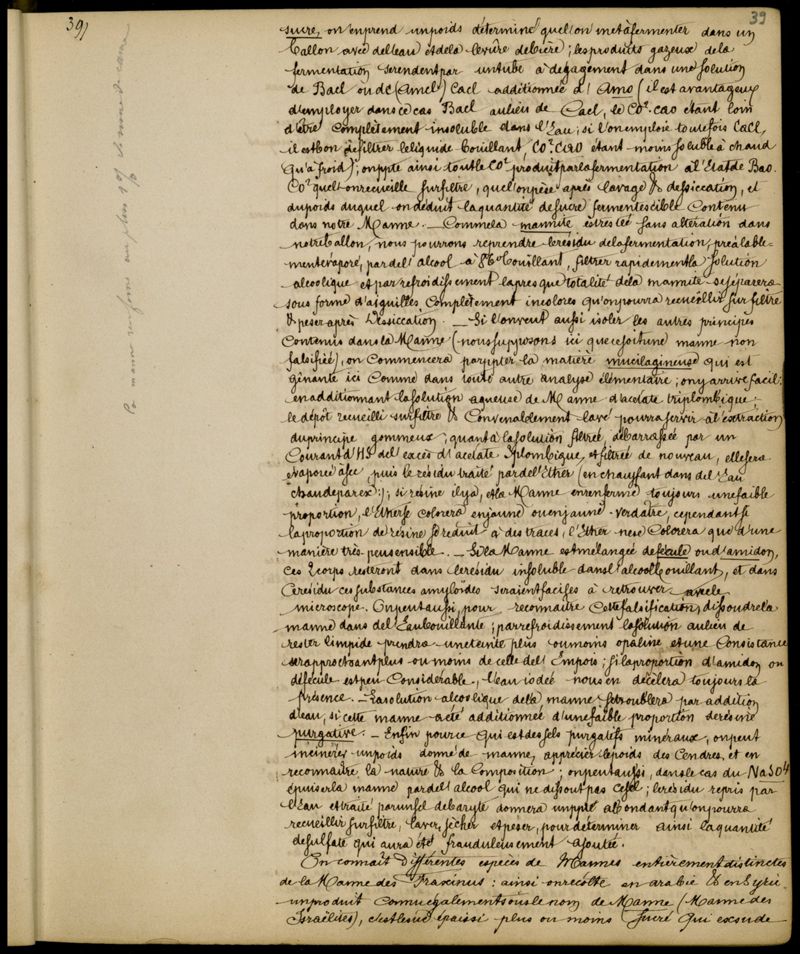 39)
39
sucre, on en prend un poids déterminé quel'on met à fermenter dans un
ballon avec del'eau et dela levûre de bière; les produits gazeux dela
fermentation se rendent par un tube à dégagement dans une solution
de Bacl ou de Cacl additionnée d'Amo (il est avantageux
d'employer dans ce cas Bacl aulieu de Cacl, le CO². cao étant loin
d'être complètement insoluble dans l'Eau; si l'on emploie toutefois Cacl,
il est bon de filtrer le liquide bouillant, CO². Cao étant moins soluble à chaud
qu'à froid); on ppte ainsi tout le CO² produit par la fermentation à l'Etat de Bao.
CO² quel'on recueille sur filtre, quel'on pèse après lavage & dessiccation, et
du poids duquel on déduit la quantité de sucre fermentescible contenu
dans notre Manne. — Comme la mannite est restée sans altération dans
notre ballon, nous pourrons reprendre le résidu dela fermentation, préalable-
ment évaporé, par del'alcool à bouillant, filtrer rapidement la solution
alcoolique et par refroidissement la presque totalité dela mannite se séparera
sous forme d'aiguilles complètement incolores qu'on pourra recueillir sur filtre
& peser après dessiccation. — Si l'on veut aussi isoler les autres principes
contenus dans la Manne (nous supposons ici que ce soit une manne non
falsifiée), on commencera par ppter la matière mucilagineuse qui est
gênante ici comme dans toute autre analyse élémentaire; on y arrive facil:
en additionnant la solution aqueuse de Manne d'acétate triplombique;
le dépôt recueilli sur filtre & convenablement lavé pourra servir à l'extraction
du principe gommeux; quant à la solution filtrée, débarrassée par un
courant d'HS del'excès d'acétate 3plombique, et filtrée de nouveau, elle sera
évaporée à sec puis le résidu traité par del'Ether (en chauffant dans del'Eau
chaude par ex:); si résine il y a, et la Manne en renferme toujours une faible
proportion, l'Ether se colorera en jaune ou en jaune verdâtre, cependant si
la proportion de résine se réduit à des traces, l'Ether ne se colorera que d'une
manière très peu sensible. — Si la Manne est mélangée de fécule ou d'amidon,
ces 2 corps resteront dans le résidu insoluble dans l'alcool bouillant, et dans
ce résidu ces substances amyloïdes seraient faciles à retrouver avec le
microscope. On peut aussi, pour reconnaître cette falsification, dissoudre la
manne dans del'Eau bouillante; par refroidissement la solution aulieu de
rester limpide prendra une teinte plus ou moins opaline et une consistance
se rapprochant plus ou moins de celle del'Empois; si la proportion d'amidon ou
de fécule est peu considérable, l'eau iodée nous en décèlera toujours la
présence. — La solution alcoolique dela manne se troublera par addition
d'eau, si cette manne a été additionnée d'une faible proportion de résine
purgative. — Enfin pour ce qui est des sels purgatifs minéraux, on peut
incinérer un poids donné de manne, apprécier le poids des Cendres, et en
reconnaître la nature & la composition; on peut aussi, dans le cas du NaSO⁴
épuiser la manne par del'alcool qui ne dissout pas ce sel; le résidu repris par
l'Eau et traité par un sel de baryte donnera un ppté abondant qu'on pourra
recueillir sur filtre, laver, sécher et peser, pour déterminer ainsi la quantité
de sulfate qui aura été frauduleusement ajoutée.
On connaît Différentes espèces de Mannes entièrement distinctes
de la Manne des Fraxinus: ainsi on récolte en arabie & en Syrie
un produit connu également sous le nom de Manne (Manne des
Israëlites), c'est le suc épaissi plus ou moins sucré qui exsude